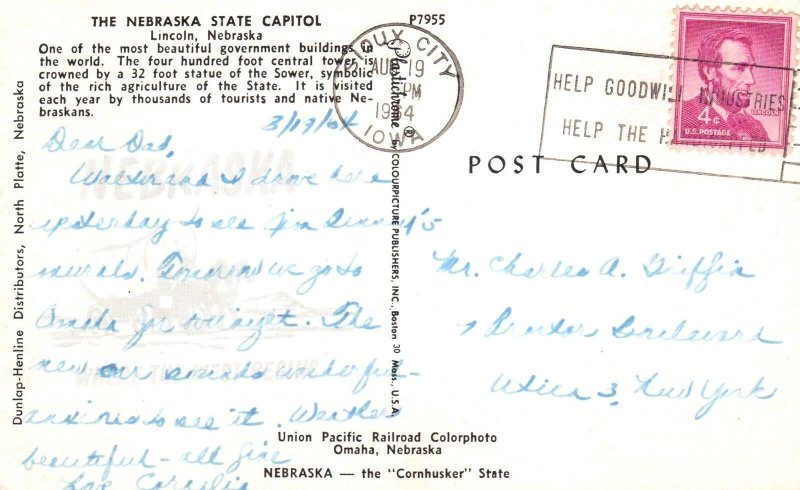 THE NEBRASKA STATE CAPITOL
Lincoln, Nebraska
One of the most beautiful government buildings in
the world. The four hundred foot central tower is
crowned by a 32 foot statue of the Sower, symbolic
of the rich agriculture of the State. It is visited
each year by thousands of tourists and native Ne-
braskans.
P7955
SIOUX CITY
AUG 19
PM
1964
IOWA
HELP GOODWILL INDUSTRIES
HELP THE HANDICAPPED
4¢
U.S. POSTAGE
LINCOLN
POST CARD
Dunlap-Henline Distributors, North Platte, Nebraska
Plastichrome ® by COLOURPICTURE PUBLISHERS, INC., Boston 30 Mass., U.S.A.
NEBRASKA
8/19/64
Dear Dad,
Walter and I drove here
yesterday to see Jim
murals. Tomorrow we go to
Omaha for overnight. The
new car sounds wonderful -
to see it. Weather
beautiful - all fine
Love Cornelia
Mr. Charles A. Griffin
Boulevard
Utica 3, New York
Union Pacific Railroad Colorphoto
Omaha, Nebraska
NEBRASKA — the "Cornhusker" State